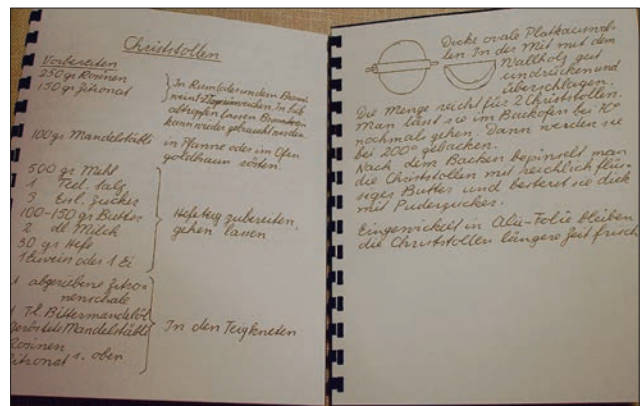 Christstollen
Vorbereiten
250 gr Rosinen
150 gr Zitronat
In Rum (oder anderem Brannt
wein) 2 Tage einweichen. In Sieb
abtropfen lassen
kann wieder gebraucht werden
100 gr Mandelstäbli
in Pfanne oder im Ofen
goldbraun rösten.
500 gr Mehl
1 Teel. Salz
3 Essl. Zucker
100-150 gr Butter
2 dl Milch
30 gr Hefe
1 Eiweiss oder 1 Ei
Hefeteig zubereiten,
gehen lassen
1 abgeriebene Zitro-
nenschale
1 Tl. Bittermandelöl
geröstete Mandelstäbli
Rosinen
Zitronat s. oben
In den Teig kneten
Dicke ovale Platten
In der Mit mit dem
Wallholz gut
eindrücken und
überschlagen.
Die Menge reicht für 2 Christstollen.
Man lässt sie im Backofen bei 70°
nochmals gehen. Dann werden sie
bei 200° gebacken.
Nach dem Backen bepinselt man
die Christstollen mit reichlich flüs-
siger Butter und bestreut sie dick
mit Puderzucker.
Eingewickelt in Alu-Folie bleiben
die Christstollen längere Zeit frisch